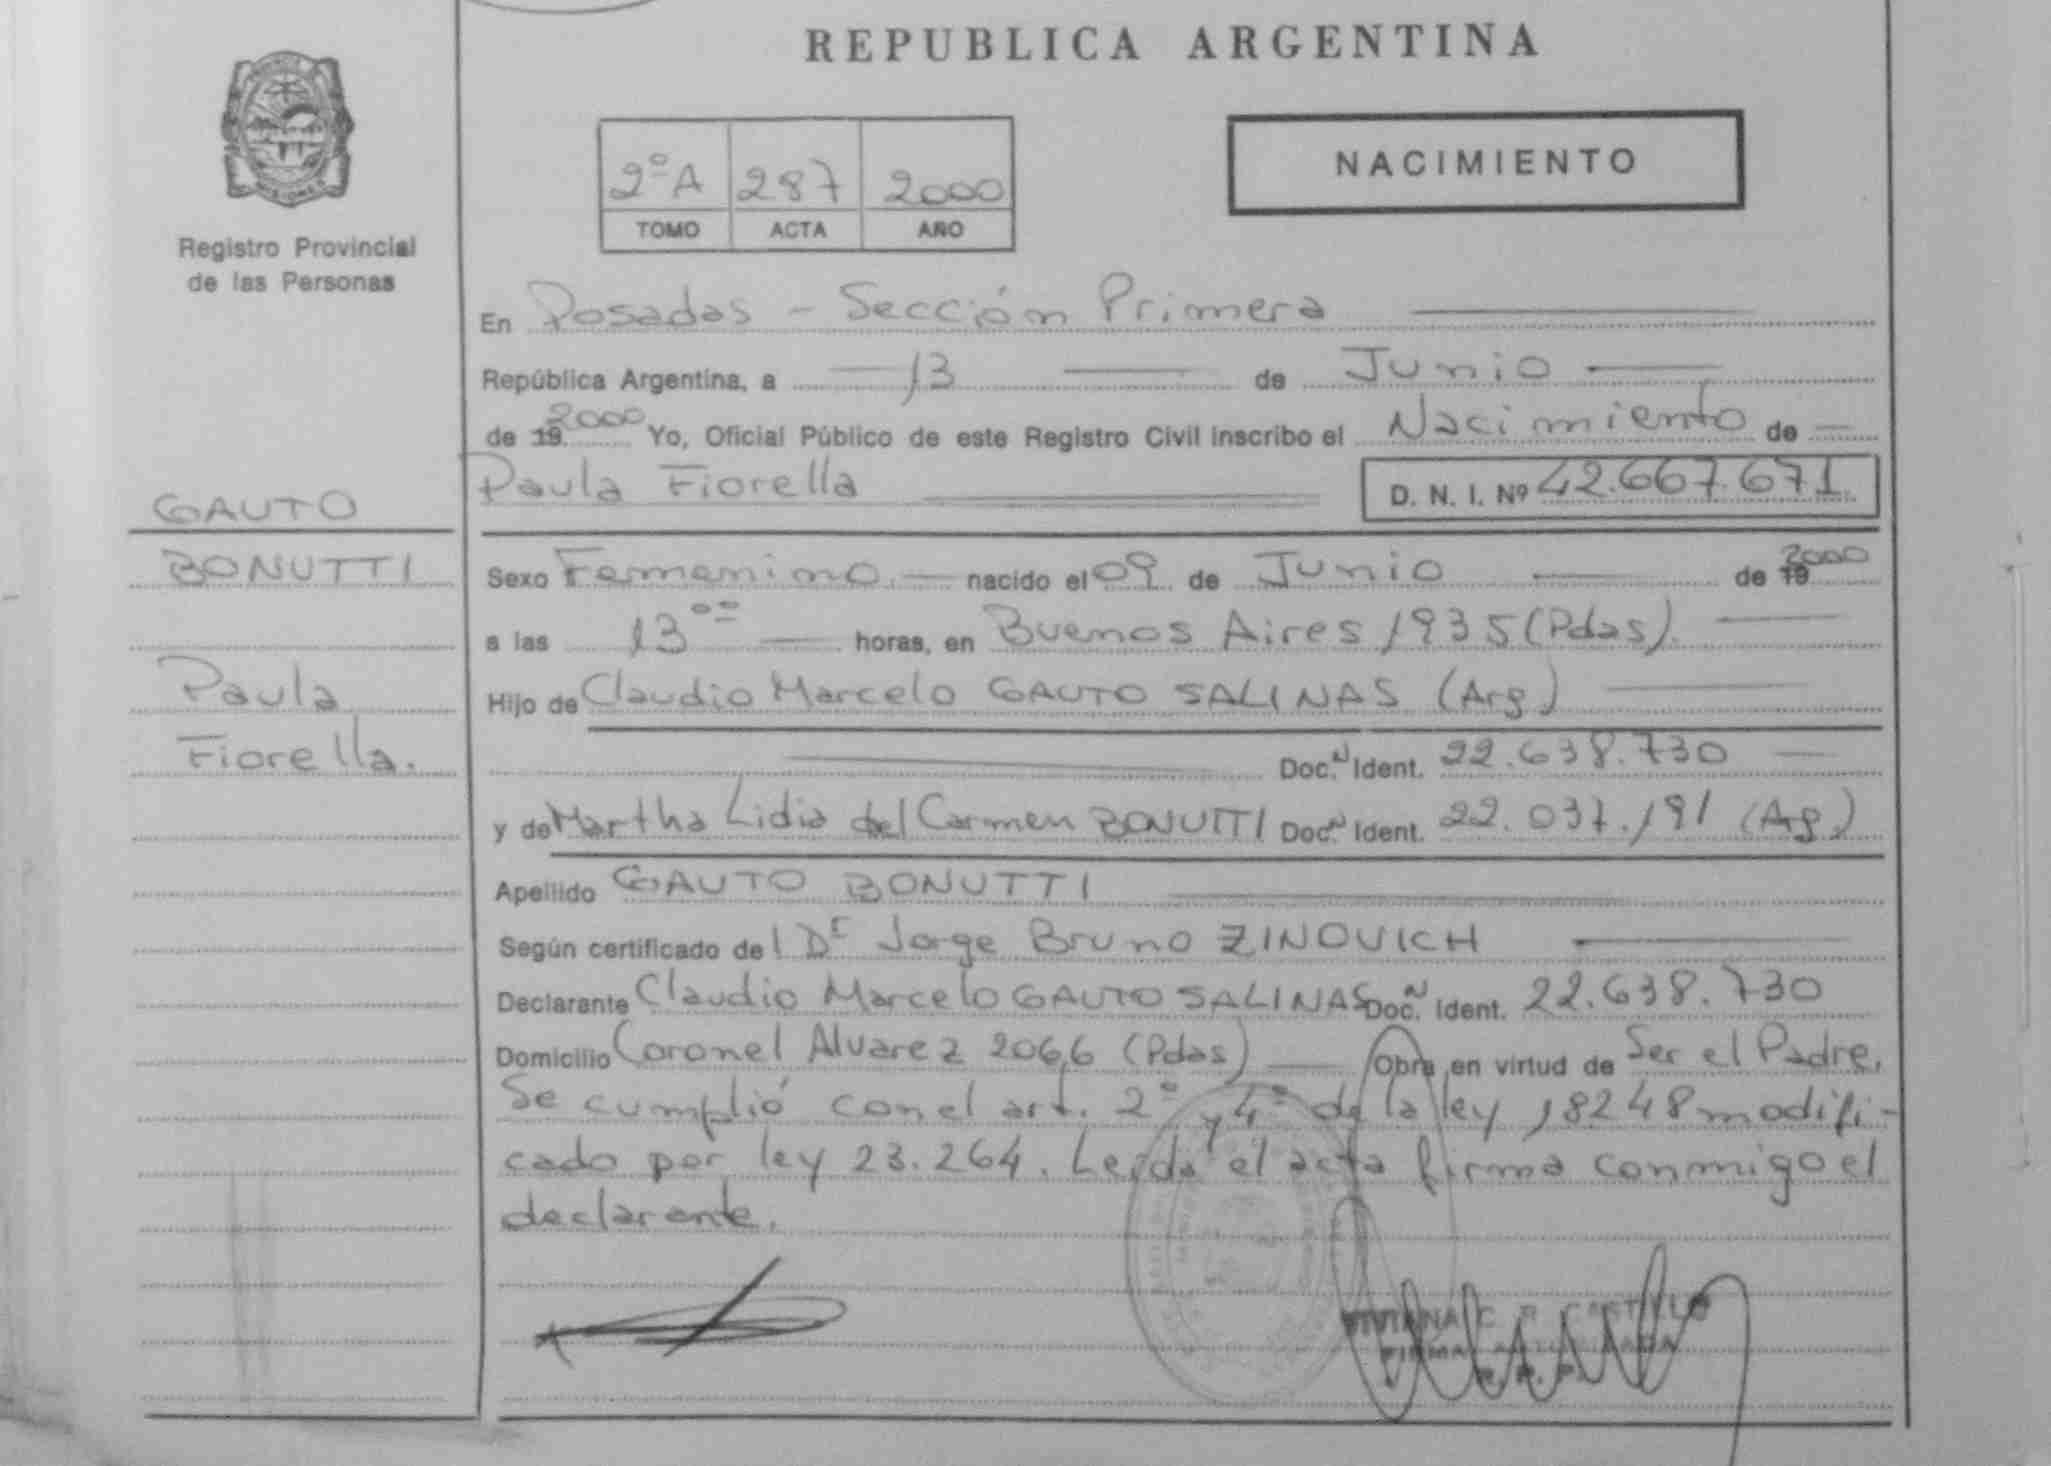 REPUBLICA ARGENTINA
Registro Provincial
de las Personas
2º A 287 2000
TOMO ACTA AÑO
NACIMIENTO
En Posadas - Sección Primera
República Argentina, a 13 de Junio
de 19 2000 Yo, Oficial Público de este Registro Civil inscribo el Nacimiento de
Paula Fiorella D. N. I. Nº 42.667.671
GAUTO
BONUTTI
Paula
Fiorella.
Sexo Femenino. nacido el 09 de Junio de 19 2000
a las 13 ºº horas, en Buenos Aires 1935 (Pdas).
Hijo de Claudio Marcelo GAUTO SALINAS (Arg)
Doc. N Ident. 22.638.730
y de Martha Lidia del Carmen BONUTTI Doc. N Ident. 22.037.191 (Ag)
Apellido GAUTO BONUTTI
Según certificado del Dr Jorge Bruno ZINOVICH
Declarante Claudio Marcelo GAUTO SALINAS Doc. N Ident. 22.638.730
Domicilio Coronel Alvarez 2066 (Pdas) Obra en virtud de Ser el Padre.
Se cumplió con el art. 2º y 4º de la ley 18248 modifi-
cado por ley 23.264. Leída el acta firma conmigo el
declarante.
C. R. CASTILLO